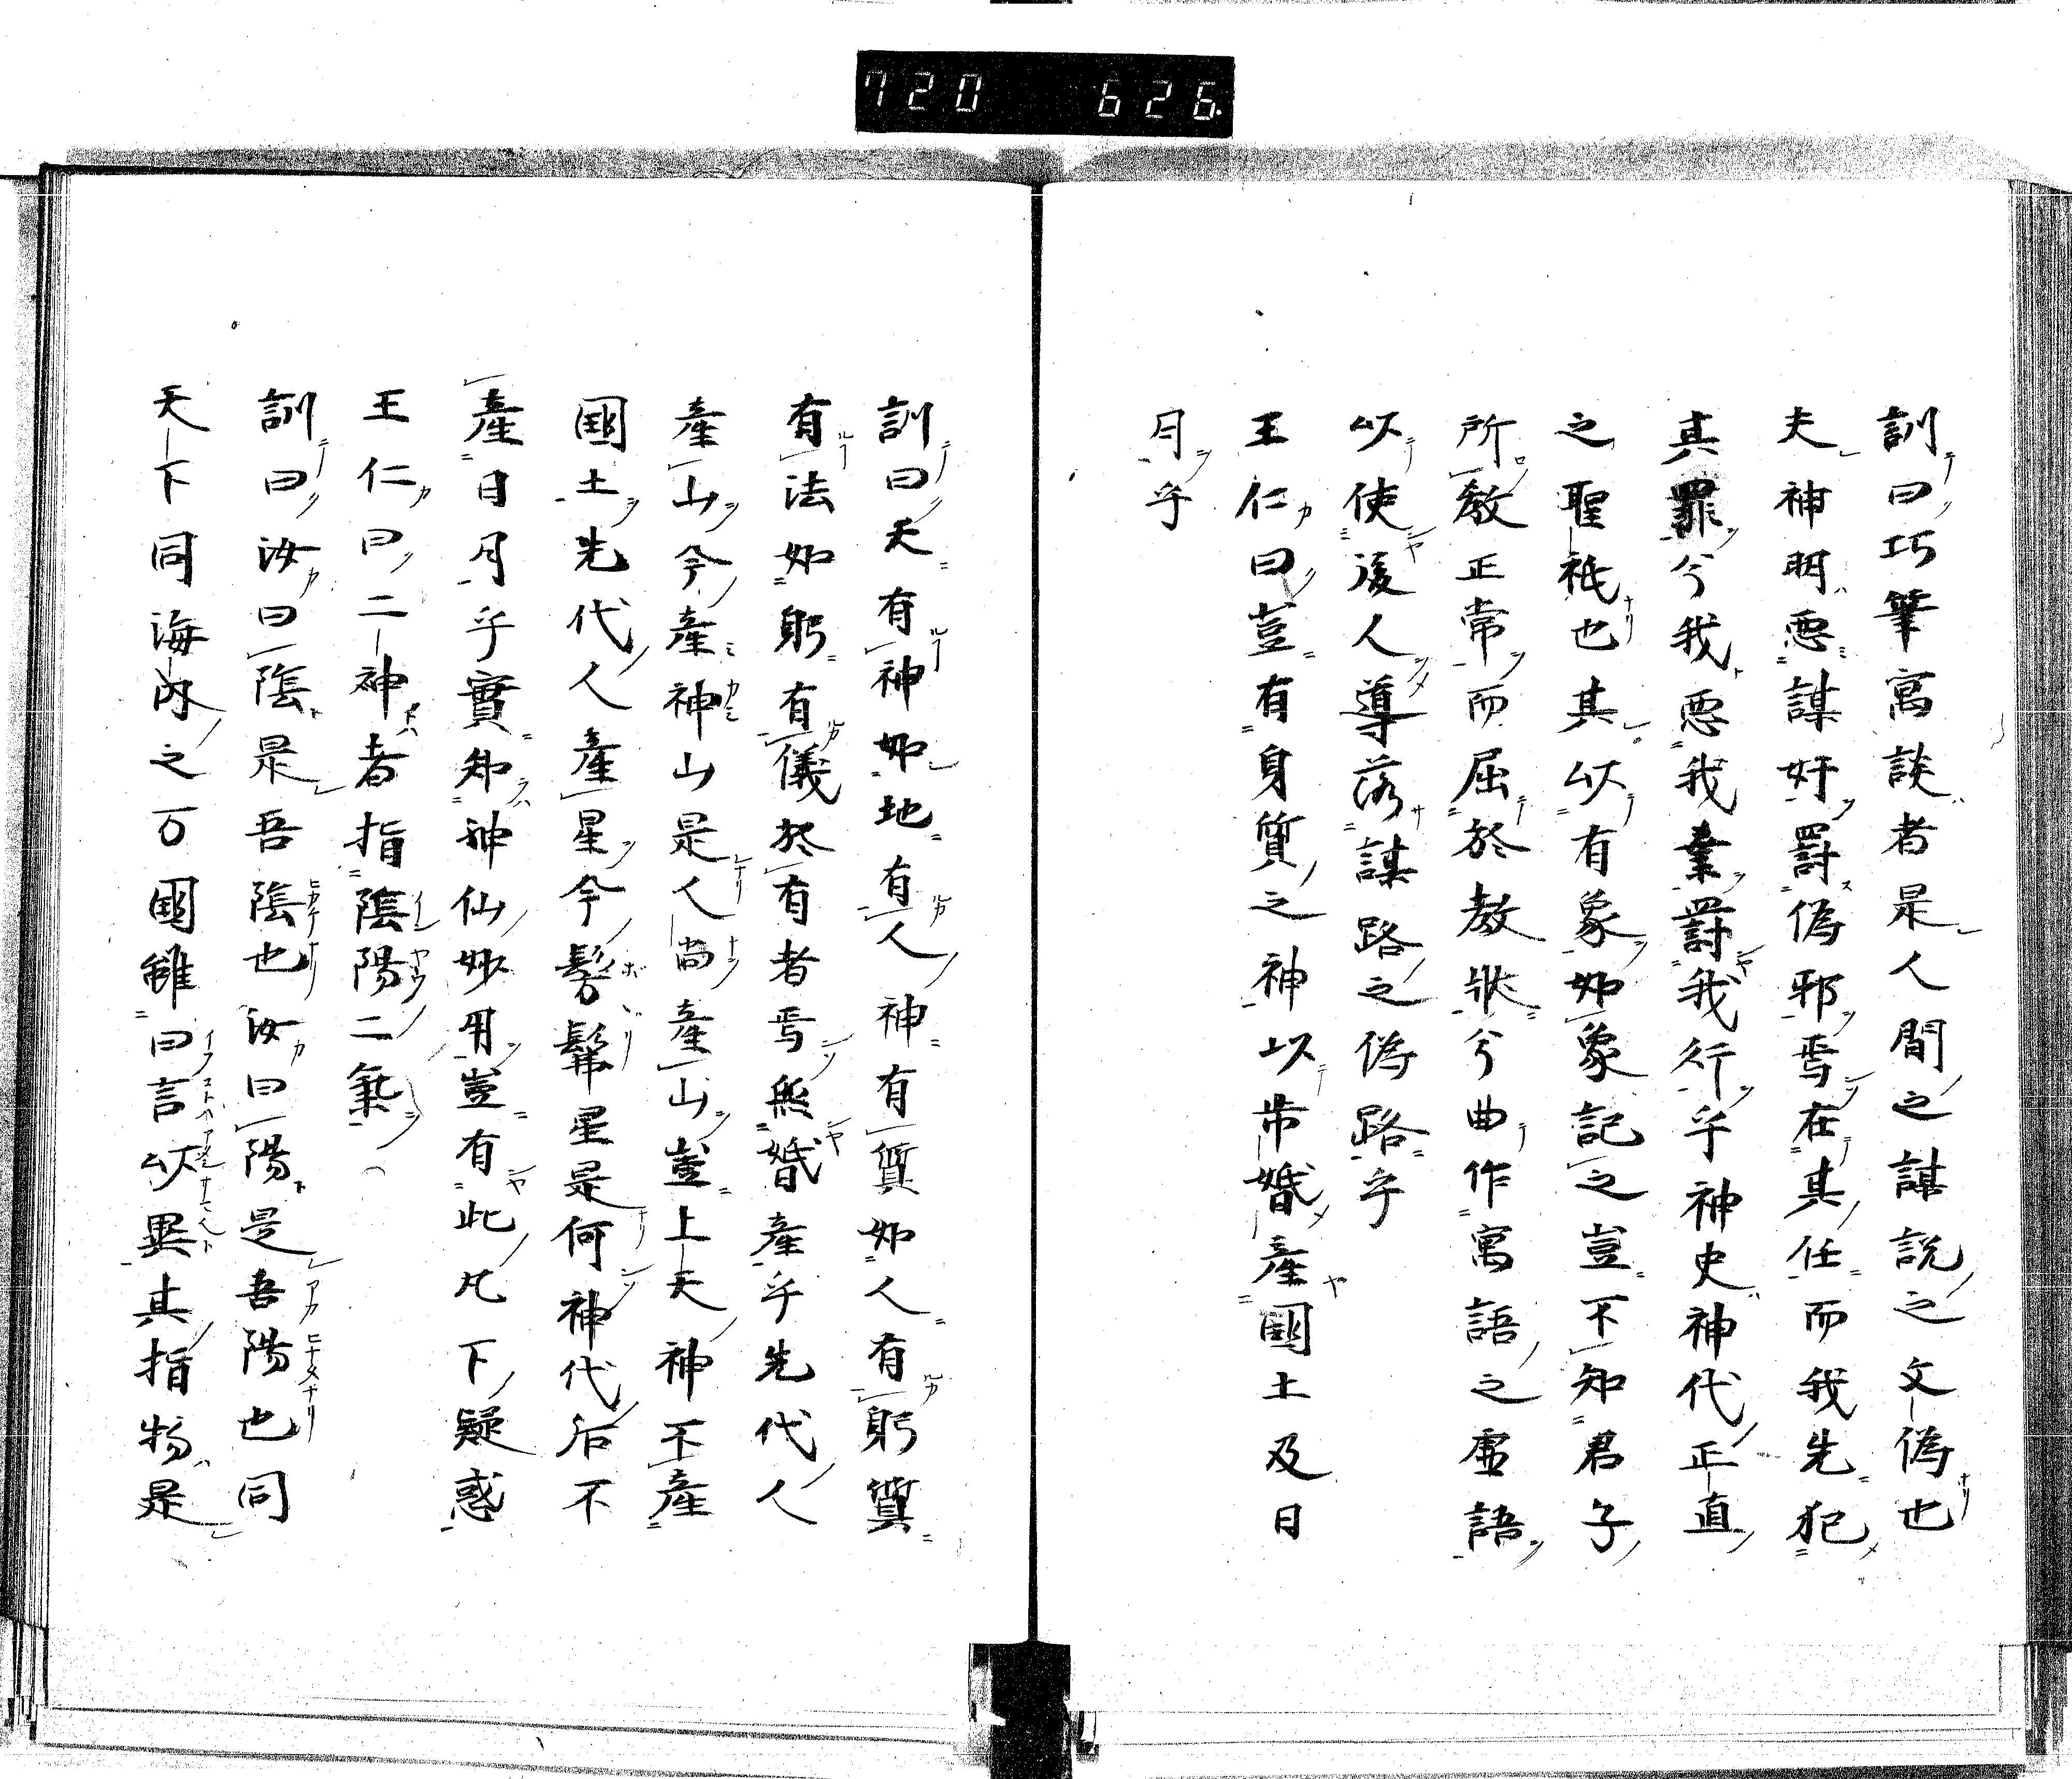 720 626
訓曰巧筆寓談者是人間之謀説之文偽也
夫神明悪謀奸罸偽邪焉在其任而我先犯
其罪兮我悪我業罸我行乎神史神代正直
之聖祇也其以有象如象記之豈不知君子
所教正常而屈於教状兮曲作寓語之虚語
以使後人導落謀路之偽路乎
王仁曰豈有身質之神以歩婚産國土及日
月乎
訓曰天有神如地有人神有質如人有躬質
有法如躬有儀於有者焉無婚産乎先代人
産山今産神山是人尚産山豈上天神不産
國土先代人産星今髣髴星是何神代后不
産日月乎實知神仙妙用豈有此凡下疑惑
王仁曰二神者指陰陽二氣
訓曰汝曰陰是吾陰也汝曰陽是吾陽也同
天下同海内之万國雖曰言以異其指物是